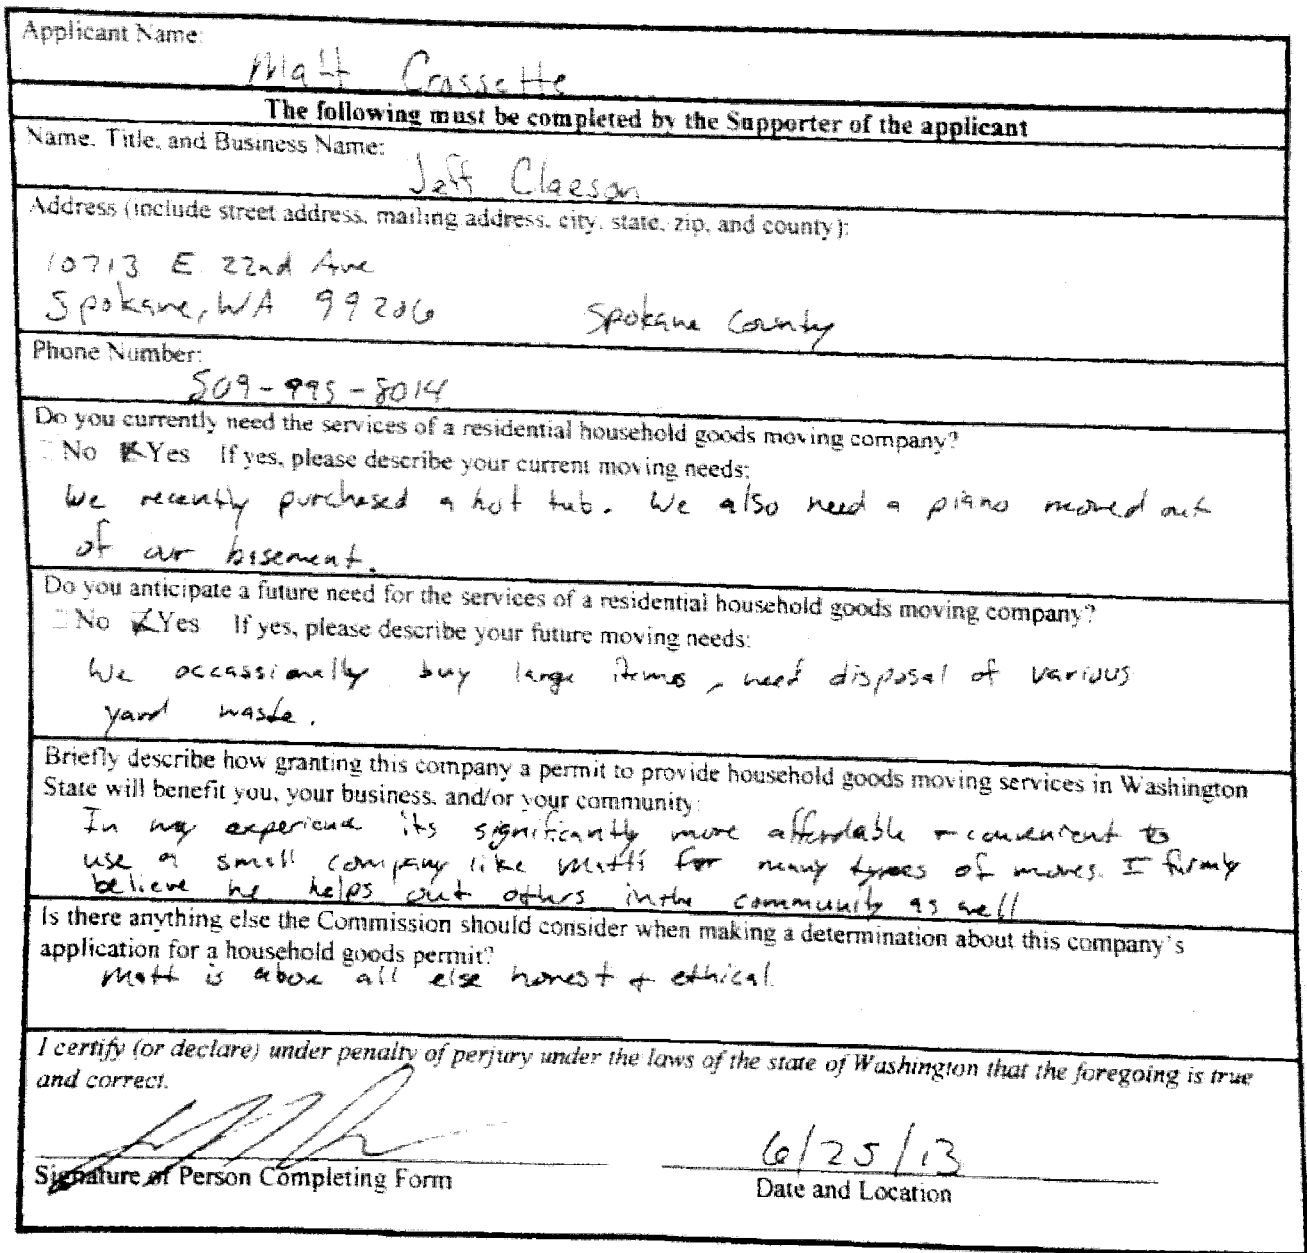 Applicant Name:
Matt Crossette
The following must be completed by the Supporter of the applicant
Name, Title, and Business Name:
Jeff Claeson
Address (include street address, mailing address, city, state, zip, and county):
10713 E 22nd Ave
Spokane, WA 99206 Spokane County
Phone Number:
509-995-8014
Do you currently need the services of a residential household goods moving company?
No Yes If yes, please describe your current moving needs:
We recently purchased a hot tub. We also need a piano moved out
of our basement.
Do you anticipate a future need for the services of a residential household goods moving company?
No Yes If yes, please describe your future moving needs:
We occassionally buy large items, need disposal of various
yard waste.
Briefly describe how granting this company a permit to provide household goods moving services in Washington
State will benefit you, your business, and/or your community:
In my experience its significantly more affordable + convenient to
use a small company like Matt's for many types of moves. I firmly
believe he helps out others in the community as well
Is there anything else the Commission should consider when making a determination about this company's
application for a household goods permit?
Matt is above all else honest + ethical.
I certify (or declare) under penalty of perjury under the laws of the state of Washington that the foregoing is true
and correct.
6/25/13
Signature of Person Completing Form Date and Location